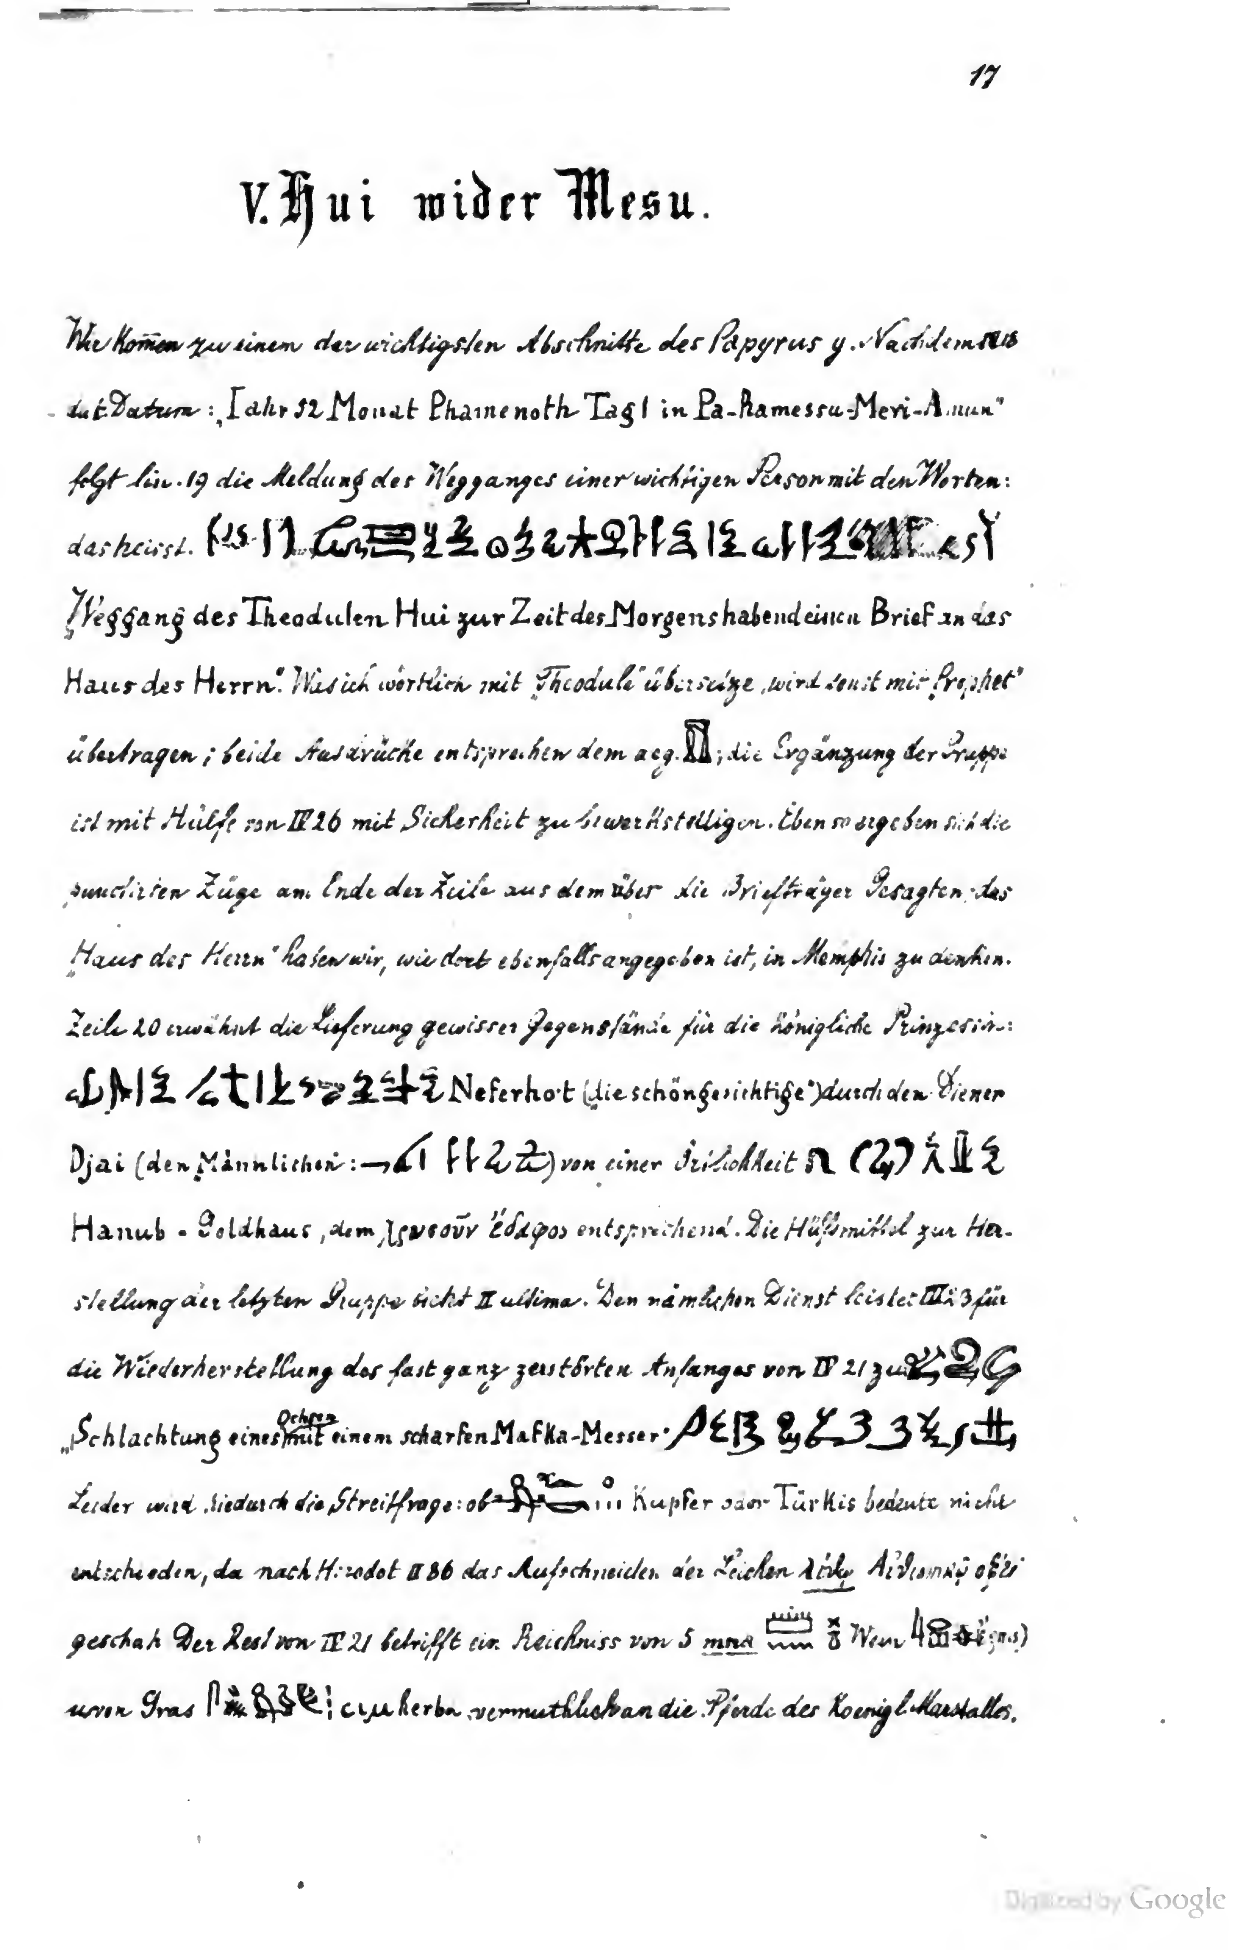 17
V. Hui wider Mesu.
Wir kom̄en zu einem der wichtigsten Abschnitte des Papyrus y. Nachdem
das Datum: „Jahr 52 Monat Phamenoth Tag 1 in Pa-Ramessu-Meri-Amun"
folgt lin. 19 die Meldung des Wegganges einer wichtigen Person mit den Worten:
das heisst.
„Weggang des Theodulen Hui zur Zeit des Morgens habend einen Brief an das
Haus des Herrn". Was ich wörtlich mit „Theodule" übersetze, wird sonst mit „Prophet"
übertragen; beide Ausdrücke entsprechen dem aeg. ; die Ergänzung der Gruppe
ist mit Hülfe von IV 26 mit Sicherheit zu bewerkstelligen. Eben so ergeben sich die
punctirten Züge am Ende der Zeile aus dem über die Briefträger Gesagten; das
„Haus des Herrn" haben wir, wie dort ebenfalls angegeben ist, in Memphis zu denken.
Zeile 20 erwähnt die Lieferung gewisser Gegenstände für die königliche Prinzessin:
Neferho·t (die schöngesichtige") durch den Diener
Djai (den Männlichen: ) von einer Örtlichkeit
Hanub - Goldhaus, dem χρυσοῦν ἔδαφος entsprechend. Die Hülfsmittel zur Her-
stellung der letzten Gruppe bietet II ultima. Den nämlichen Dienst leistet III 23 für
die Wiederherstellung des fast ganz zerstörten Anfanges von IV 21 zu
„Schlachtung eines Ochsen mit einem scharfen Mafka-Messer"
Leider wird hiedurch die Streitfrage: ob Kupfer oder Türkis bedeute nicht
entschieden, da nach Herodot II 86 das Aufschneiden der Leichen λίθῳ Αἰθιοπικῷ ὀξέϊ
geschah Der Rest von IV 21 betrifft ein Reichniss von 5 mna Wein
u. von Gras ⲥⲓⲙ herba, vermuthlich an die Pferde des Koenigl. Marstalles.
Digitized by Google